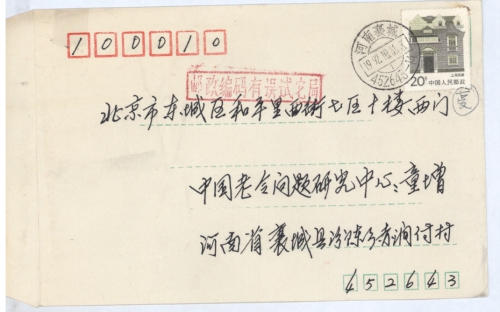 100010
河南襄城
452643
20分
中国人民邮政
邮政编码有误试投局
北京市东城区和平里西街七区十楼西门
中国老令问题研究中心:童增
河南省襄城县汾陈乡方涧付村
452643